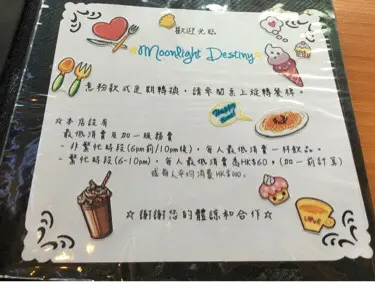 歡迎光臨
Moonlight Destiny
意粉款式定期轉換，請參閱桌上旋轉餐牌。
Happy
☆本店設有
最低消費及加一服務
- 非繁忙時段(6pm前/10pm後)，每人最低消費一杯飲品。
- 繁忙時段(6-10pm)，每人最低消費為HK$60。(加一前計算)
或每人平均消費HK$100。
☆謝謝您的體諒和合作☆
Love